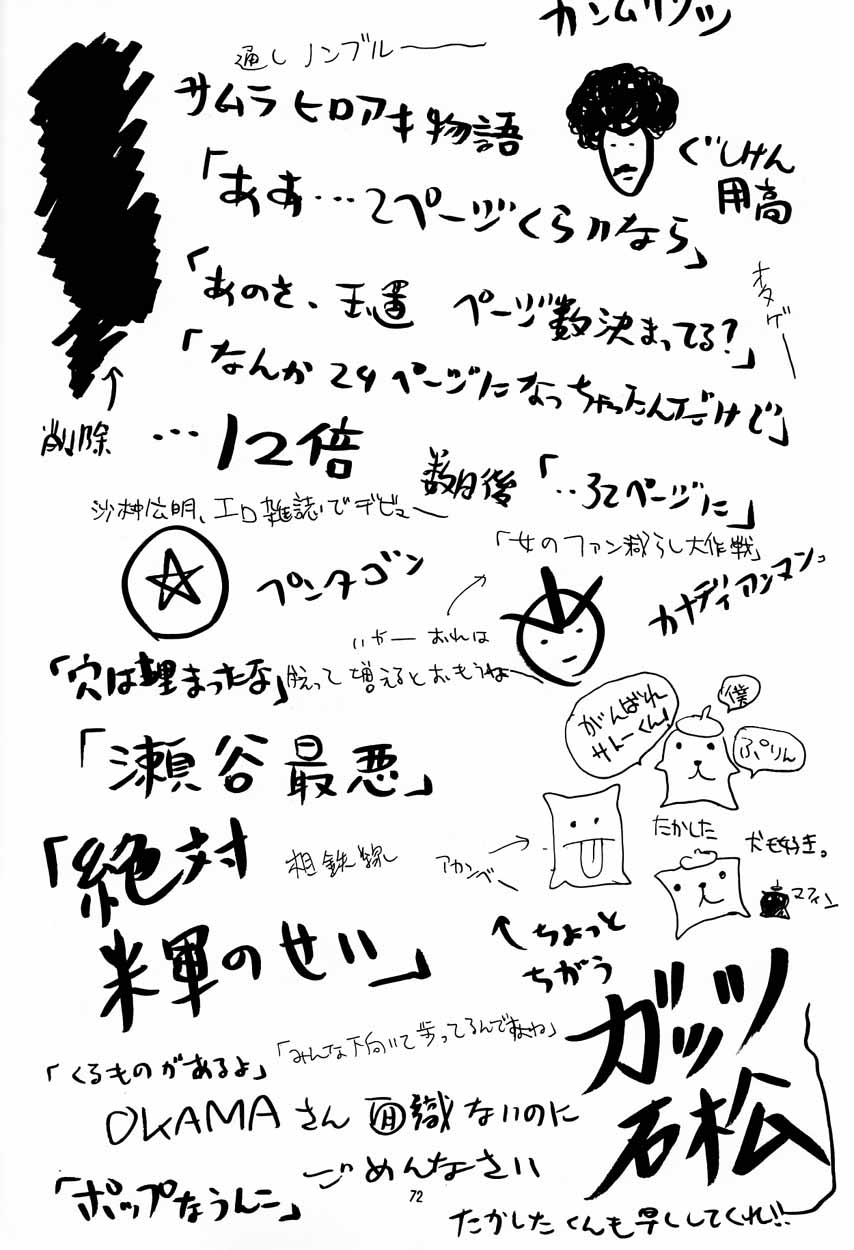 カンムリワシ
通しノンブル——
サムラヒロアキ物語
ぐしけん
用高
「ああ…2ページくらいなら」
「あのさ、玉置 ページ数決まってる?」
オタゲー
「なんか24ページになっちゃったんだけど」
削除
…12倍
数日後「‥32ページに」
沙村広明、エロ雑誌でデビュー
「女のファン減らし大作戦」
ペンタゴン
カナディアンマン。
いやー おれは
「穴は埋まったな」
脱って増えるとおもうねー
がんばれ
サトーくん!
僕
ぷりん
「瀬谷最悪」
たかした
犬も好き。
「絶対
相鉄線
アカンベー
マフィン
米軍のせい」
ちょっと
ちがう
ガッツ
石松
「みんな下向いて歩ってるんですよね」
「くるものがあるよ」
OKAMAさん 面識ないのに
ごめんなさい
「ポップなうんこ」
72
たかしたくんも早くしてくれ!!